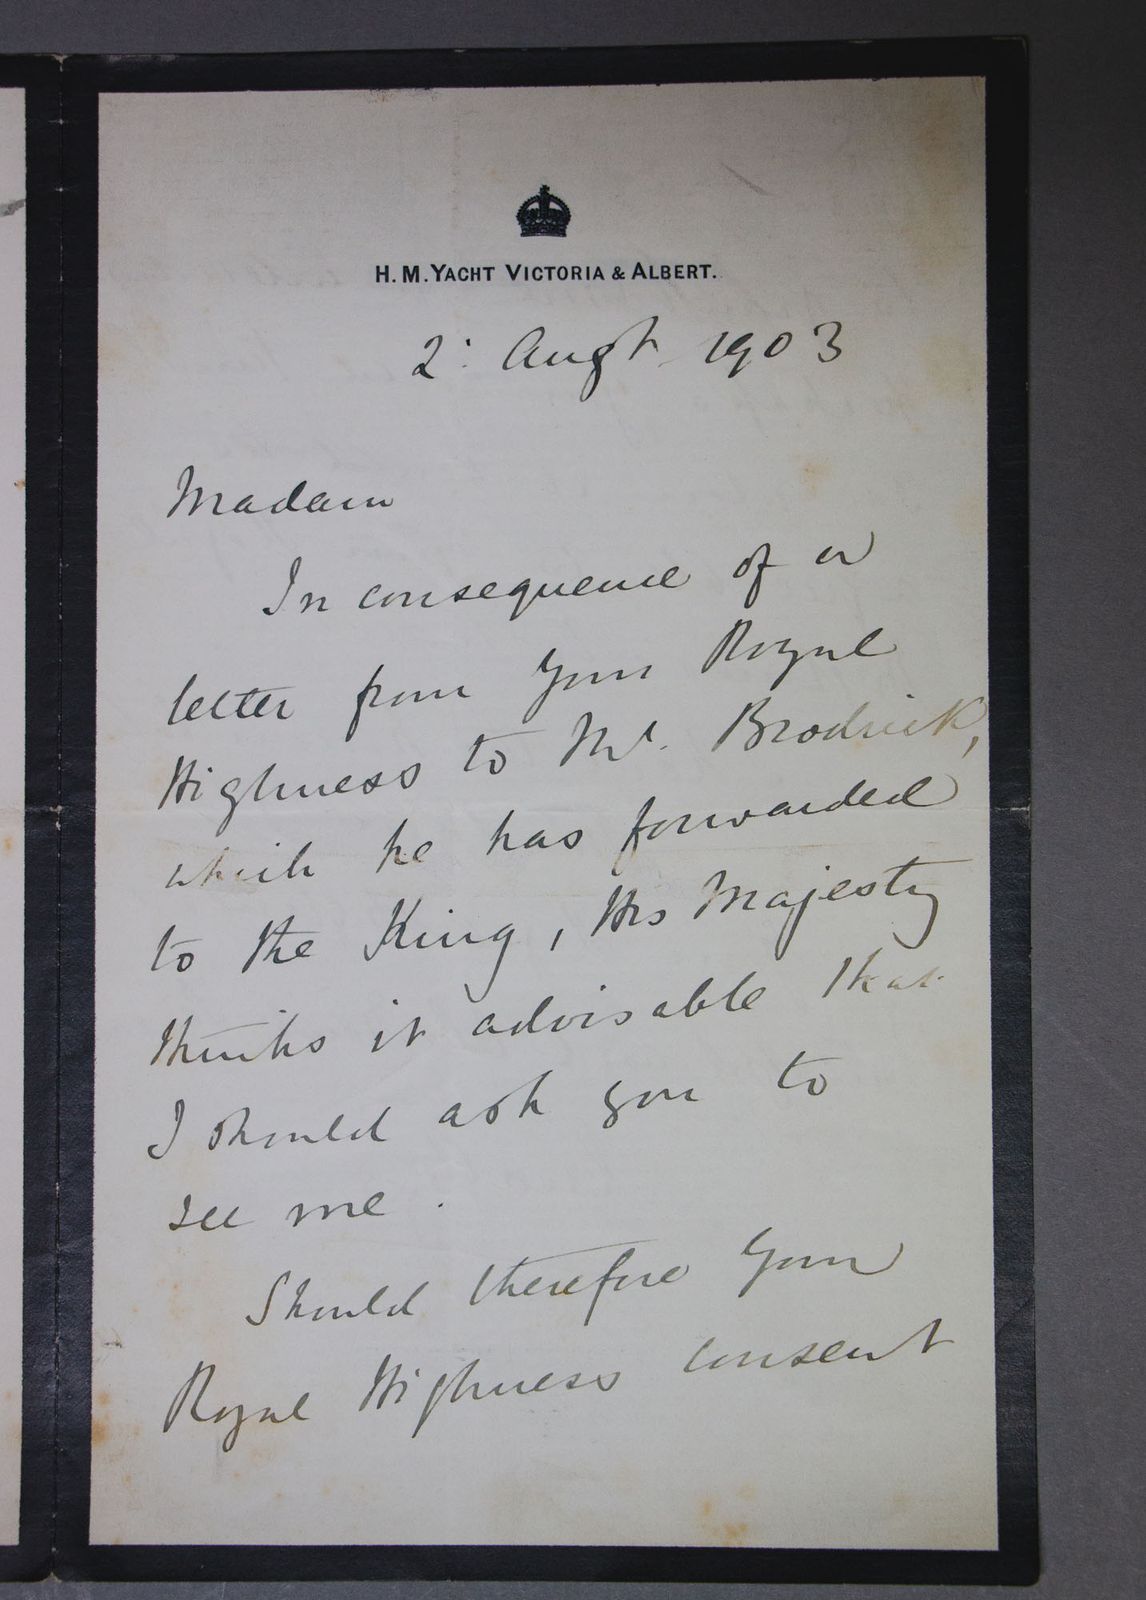 H. M. YACHT VICTORIA & ALBERT.
2: Augt 1903
Madam
In consequence of a
letter from Your Royal
Highness to Mr. Brodrick,
which he has forwarded
to the King, His Majesty
thinks it advisable that
I should ask you to
see me.
Should therefore Your
Royal Highness consent